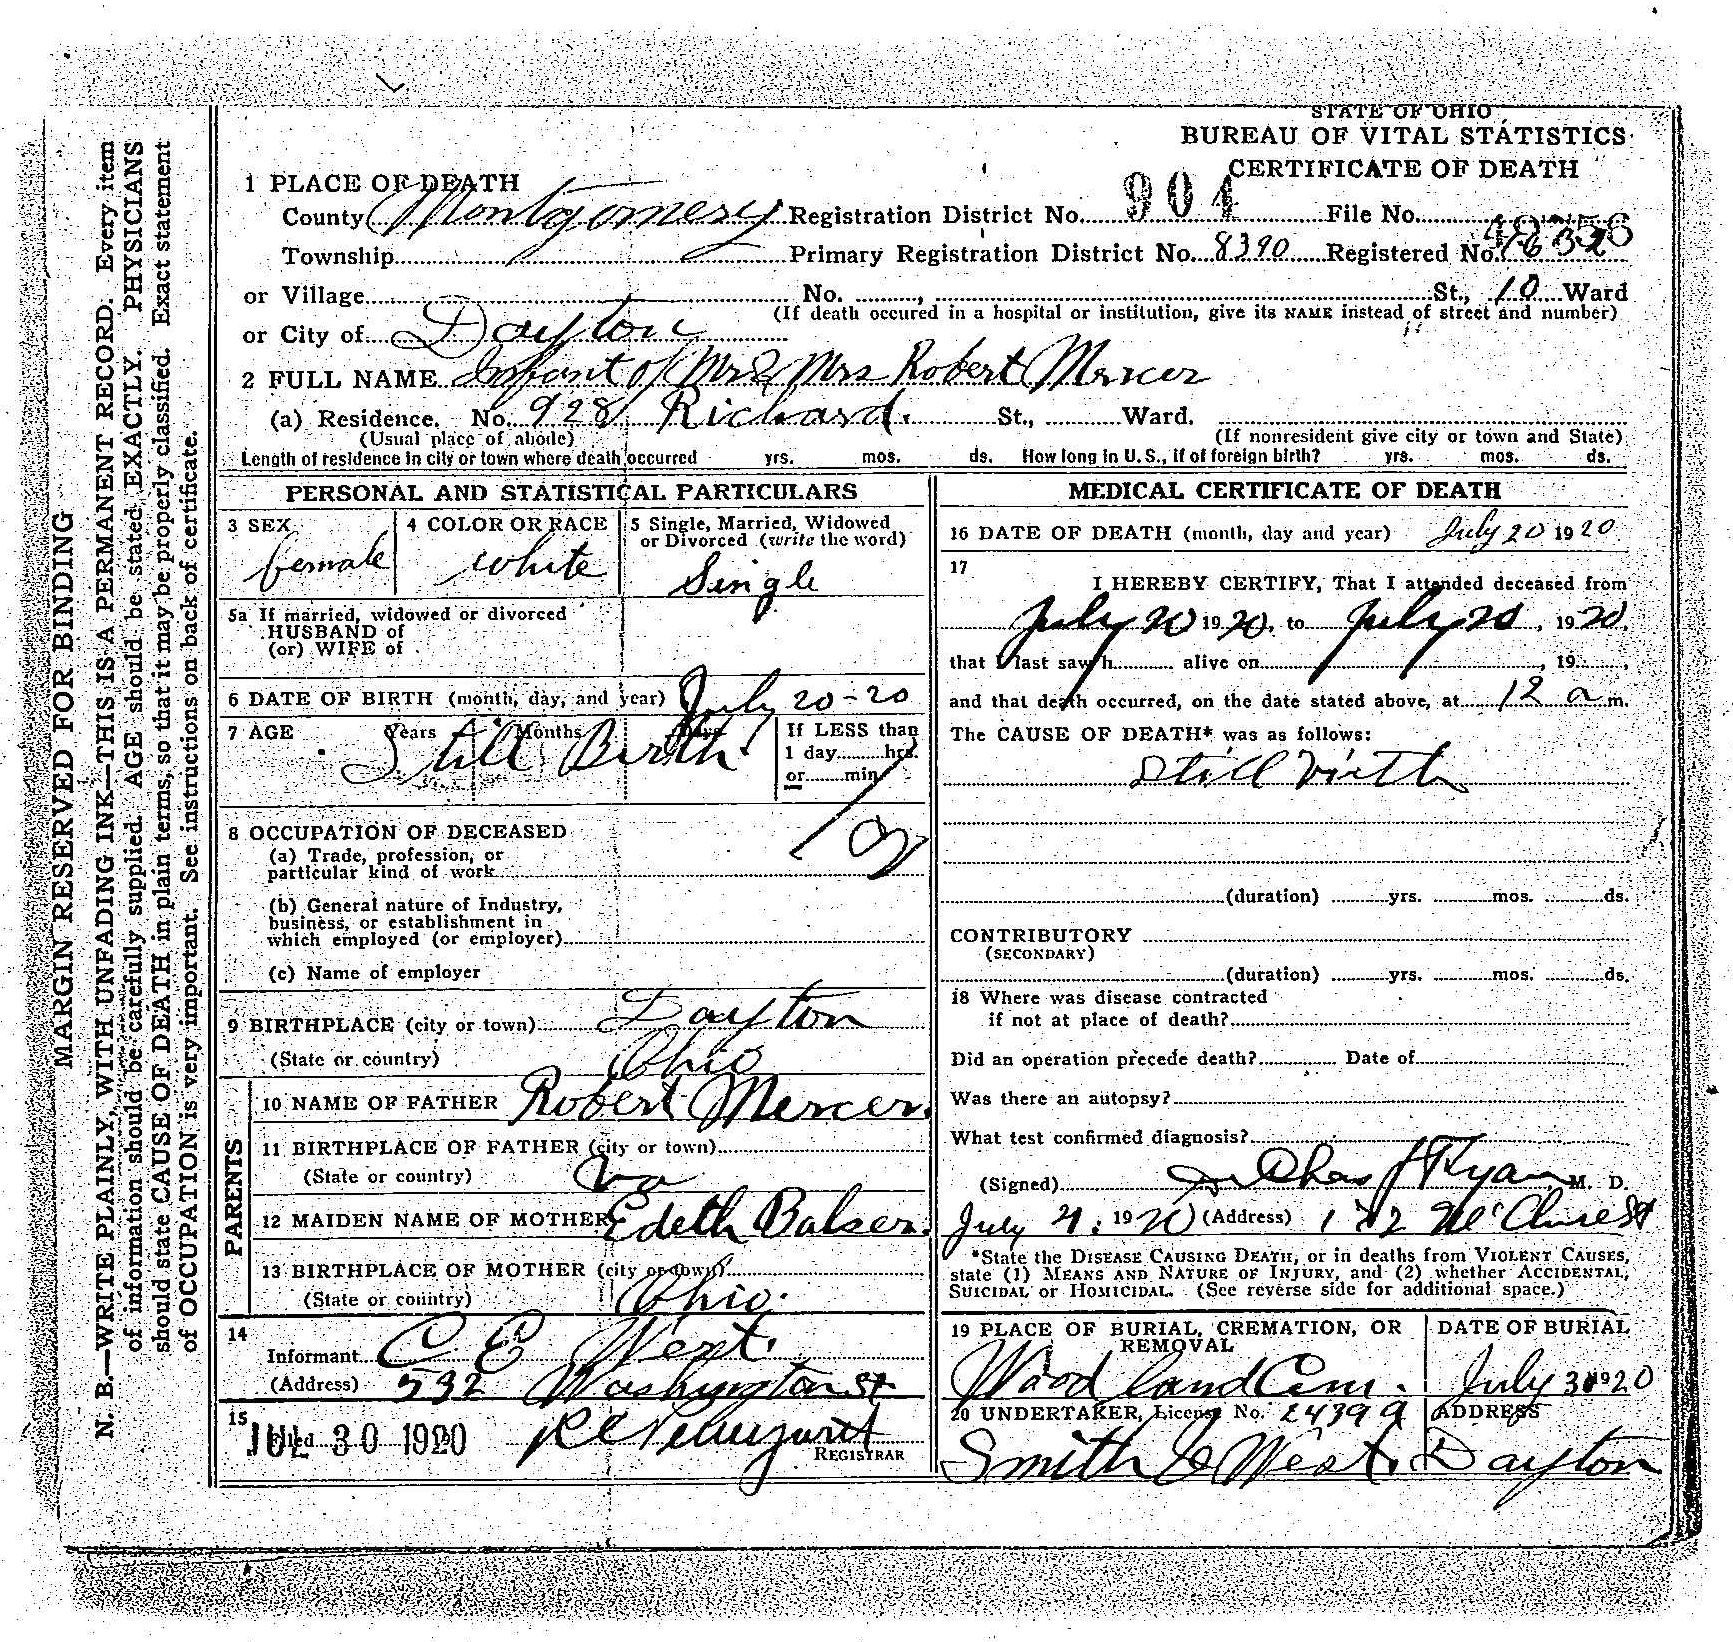 STATE OF OHIO
BUREAU OF VITAL STATISTICS
CERTIFICATE OF DEATH
1 PLACE OF DEATH
County Montgomery Registration District No. 904 File No.
Township Primary Registration District No. 8390 Registered No.
or Village No. , St., 10 Ward
(If death occured in a hospital or institution, give its NAME instead of street and number)
or City of Dayton
2 FULL NAME Infant of Mr & Mrs Robert Mercer
(a) Residence. No. 928 Richard. St., Ward.
(Usual place of abode) (If nonresident give city or town and State)
Length of residence in city or town where death occurred yrs. mos. ds. How long in U. S., if of foreign birth? yrs. mos. ds.
PERSONAL AND STATISTICAL PARTICULARS
3 SEX 4 COLOR OR RACE 5 Single, Married, Widowed
or Divorced (write the word)
female white Single
5a If married, widowed or divorced
HUSBAND of
(or) WIFE of
6 DATE OF BIRTH (month, day, and year) July 20-20
7 AGE Years Months Days If LESS than
1 day hrs.
or min.
Still Birth
8 OCCUPATION OF DECEASED
(a) Trade, profession, or
particular kind of work
(b) General nature of Industry,
business, or establishment in
which employed (or employer)
(c) Name of employer
9 BIRTHPLACE (city or town) Dayton
(State or country) Ohio
PARENTS
10 NAME OF FATHER Robert Mercer.
11 BIRTHPLACE OF FATHER (city or town)
(State or country) Va
12 MAIDEN NAME OF MOTHER Edeth Balser.
13 BIRTHPLACE OF MOTHER (city or town)
(State or country) Ohio.
14
Informant C E West.
(Address) 532 Washington St.
15
Filed JUL 30 1920
REGISTRAR
MEDICAL CERTIFICATE OF DEATH
16 DATE OF DEATH (month, day and year) July 20 1920
17
I HEREBY CERTIFY, That I attended deceased from
July 20 1920, to July 20, 1920,
that I last saw h alive on , 19 ,
and that death occurred, on the date stated above, at 12 a m.
The CAUSE OF DEATH* was as follows:
Still Birth
(duration) yrs. mos. ds.
CONTRIBUTORY
(SECONDARY)
(duration) yrs. mos. ds.
18 Where was disease contracted
if not at place of death?
Did an operation precede death? Date of
Was there an autopsy?
What test confirmed diagnosis?
(Signed) Chas J Ryan M. D.
July 1920 (Address) McClure St
*State the DISEASE CAUSING DEATH, or in deaths from VIOLENT CAUSES,
state (1) MEANS AND NATURE OF INJURY, and (2) whether ACCIDENTAL,
SUICIDAL or HOMICIDAL. (See reverse side for additional space.)
19 PLACE OF BURIAL, CREMATION, OR
REMOVAL
DATE OF BURIAL
Woodland Cem. July 1920
20 UNDERTAKER, License No. 2439 A ADDRESS
Smith & West. Dayton
MARGIN RESERVED FOR BINDING
N. B.—WRITE PLAINLY, WITH UNFADING INK—THIS IS A PERMANENT RECORD. Every item
of information should be carefully supplied. AGE should be stated EXACTLY. PHYSICIANS
should state CAUSE OF DEATH in plain terms, so that it may be properly classified. Exact statement
of OCCUPATION is very important. See instructions on back of certificate.